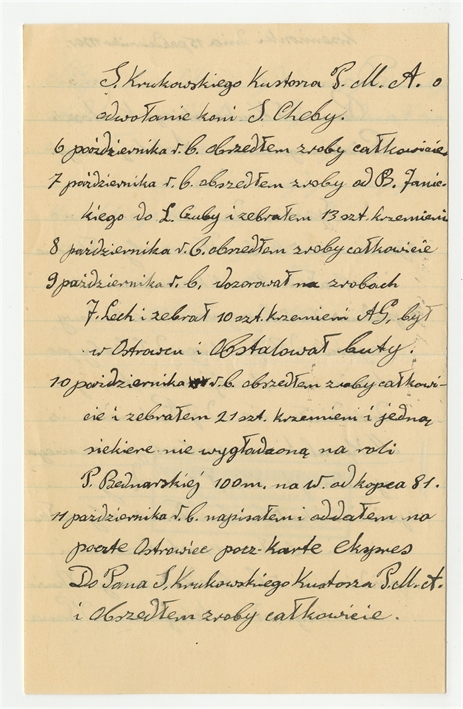 S. Krukowskiego Kustosza P. M. A. o
odwołanie koni S. Cheby.
6 października r. b. obszedłem zroby całkowicie
7 października r. b. obszedłem zroby od B. Janic-
kiego do L. Czuby i zebrałem 13 szt. krzemieni
8 października r. b. obszedłem zroby całkowicie
9 października r. b. dozorował na zrobach
F. Lech i zebrał 10 szt. krzemieni AG, był
w Ostrowcu i Obstalował buty.
10 października r. b. obszedłem zroby całkowi-
cie i zebrałem 21 szt. krzemieni i jedną
siekiere nie wygładzoną na roli
P. Bednarskiéj 100m. na W. od kopca 81.
11 października r. b. napisałem i oddałem na
poczte Ostrowiec pocz-karte ekspres
Do Pana S. Krukowskiego Kustosza P. M. A.
i Obszedłem zroby całkowicie.